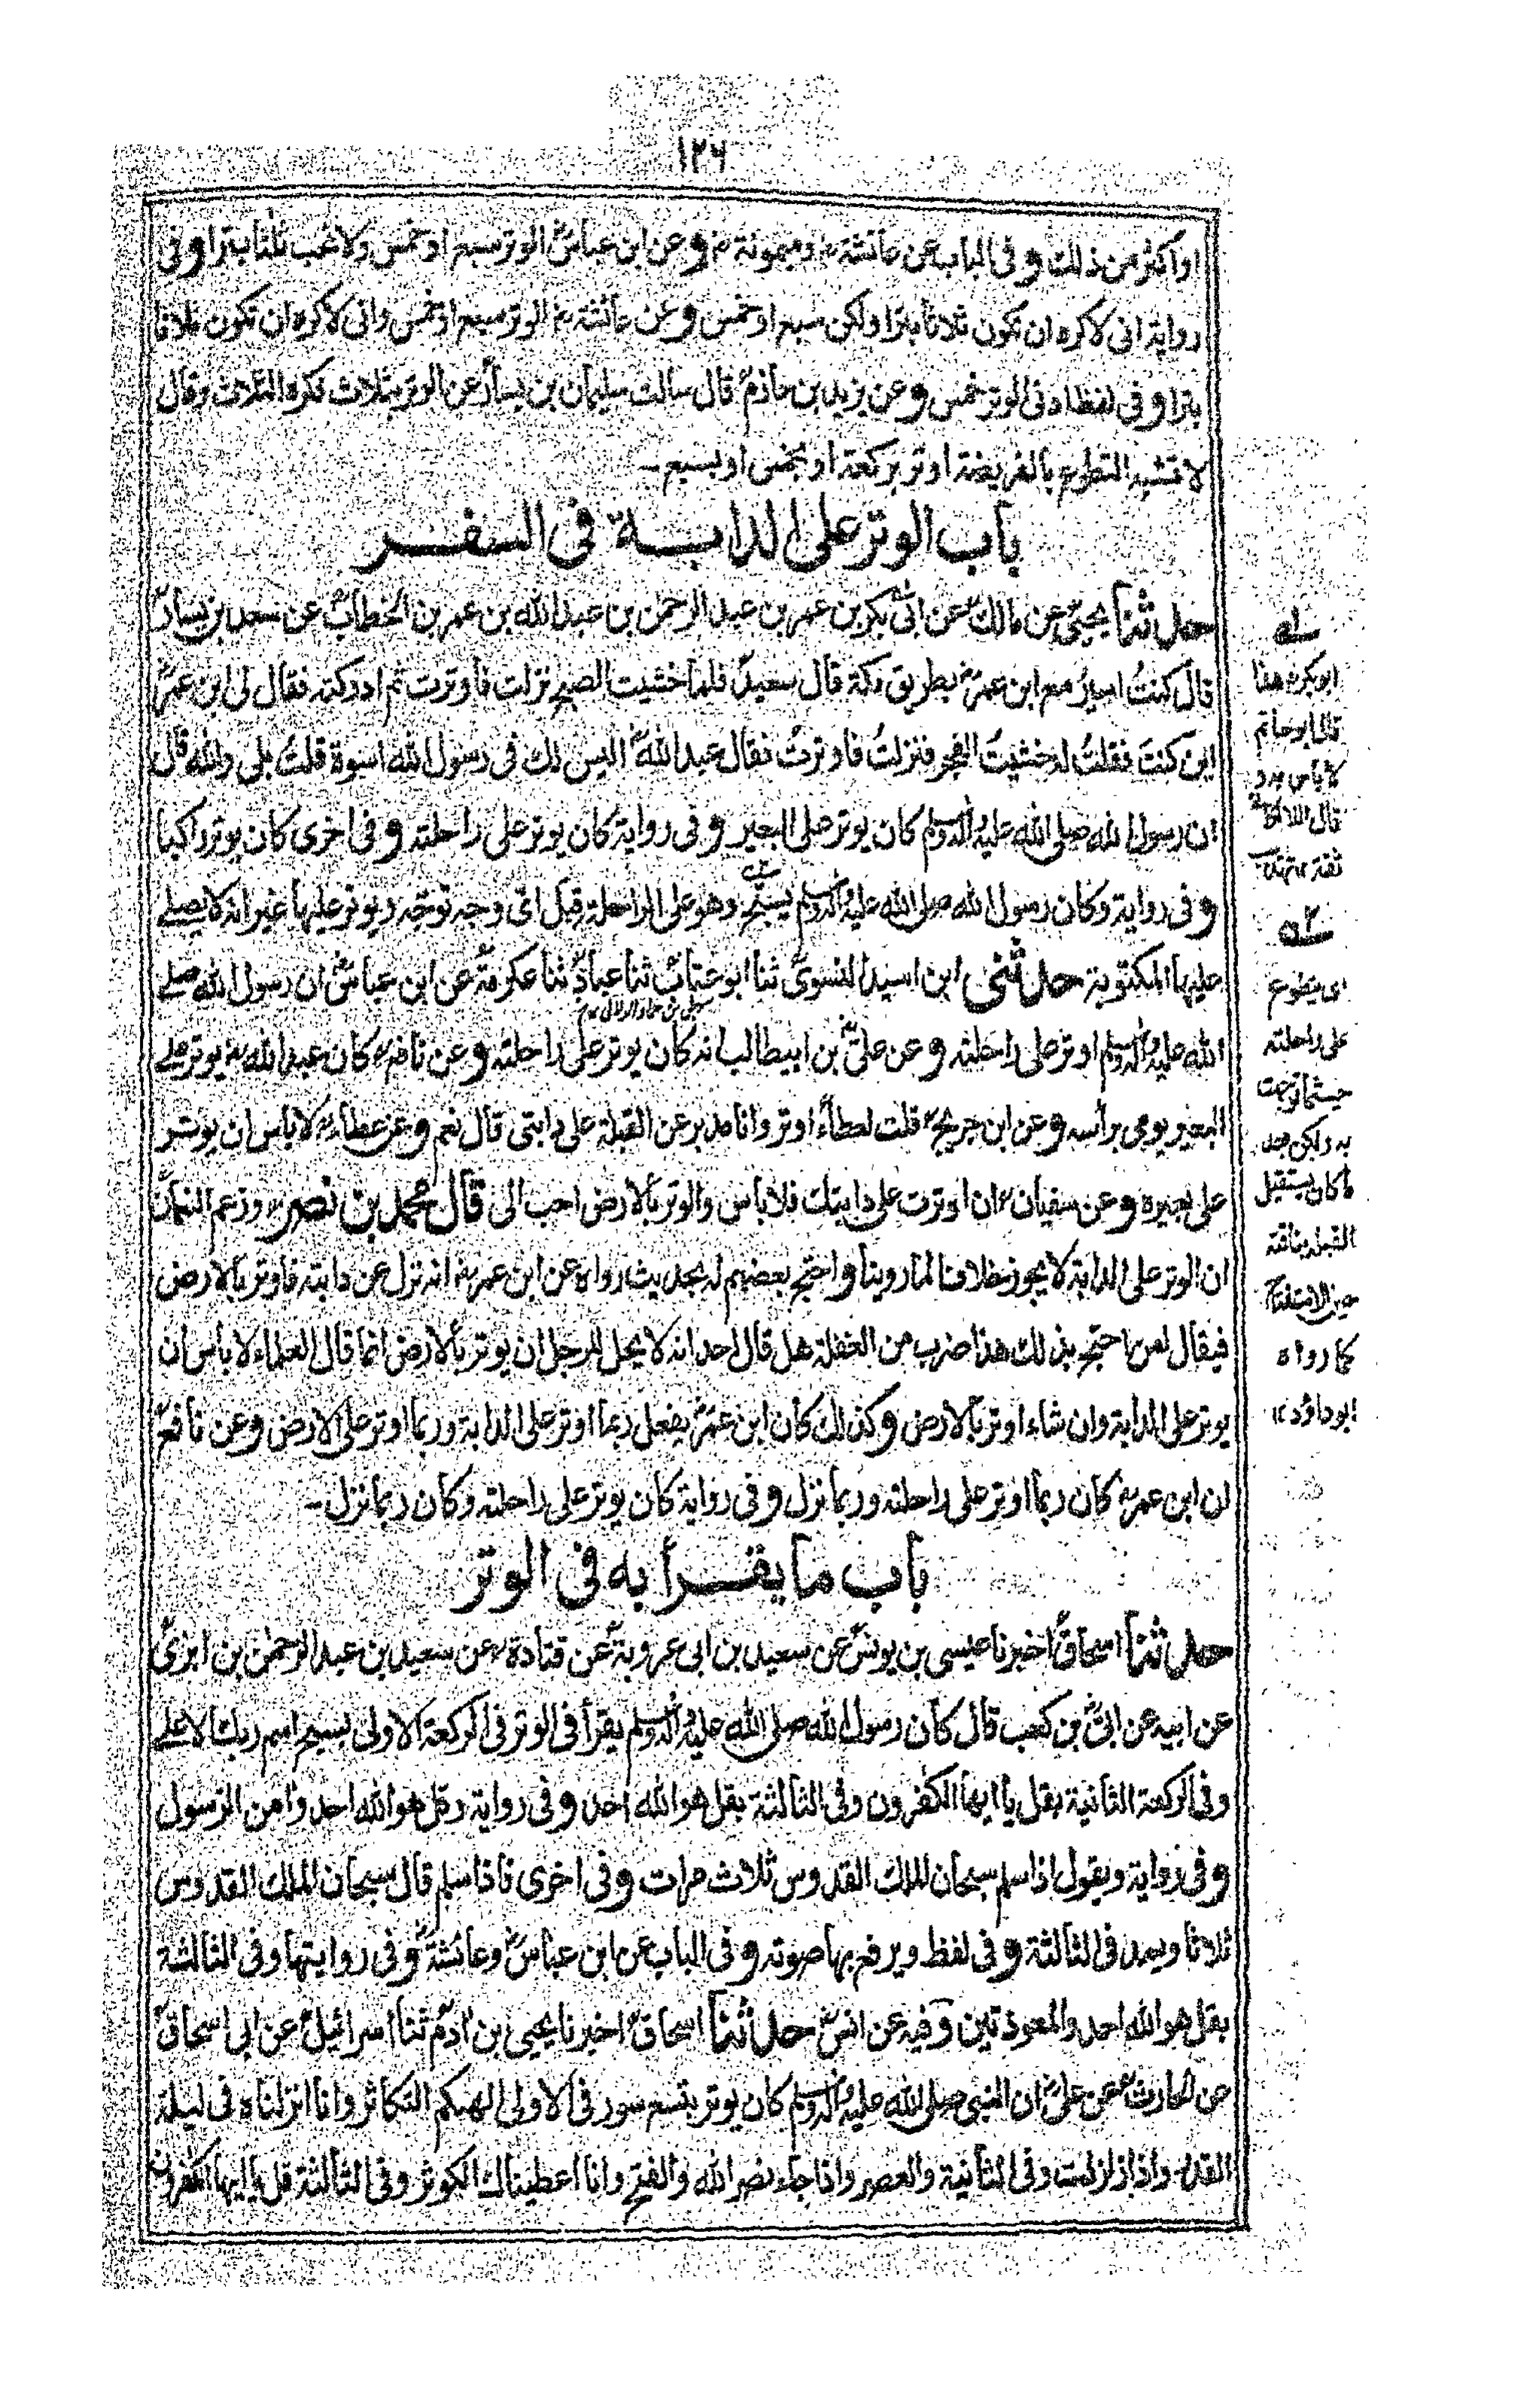 ١٢٦
او اكثر من ذلك وفى الباب عن عائشة رض وميمونة رض وعن ابن عباسؓ الوتر سبع او خمس ولا نحب ثلثا بترا وفى
رواية انى لاكره ان تكون ثلاثا بترا ولكن سبع او خمس وعن عائشة رض الوتر سبع او خمس وانى لاكره ان تكون ثلاثا
بترا وفى لفظ ادنى الوتر خمس وعن يزيد بن حازمؒ قال سألت سليمان بن يسارؒ عن الوتر بثلاث فكره الثلاث وقال
لا تشبه التطوع بالفريضة اوتر بركعة او بخمس او بسبع -
باب الوتر على الدابة فى السفر
حدثنا يحيىؒ عن مالكؒ عن ابى بكر بن عمر بن عبد الرحمن بن عبد الله بن عمر بن الخطابؓ عن سعيد بن يسارؒ
قال كنتُ اسيرُ مع ابن عمر رض بطريق مكة قال سعيدؒ فلما خشيت الصبح نزلت فأوترت ثم ادركته فقال لى ابن عمرؓ
اين كنتَ فقلتُ له خشيتُ الفجر فنزلتُ فاوترتُ فقال عبد اللهؓ اليس لك فى رسول الله اسوة قلتُ بلى والله قال
ان رسول الله صلى الله عليه وآله وسلم كان يوتر على البعير وفى رواية كان يوتر على راحلته وفى اخرى كان يوتر راكبا
وفى رواية وكان رسول الله صلى الله عليه وآله وسلم يسبّح وهو على الراحلة قبل اىّ وجه توجّه ويوتر عليها غير انه لا يصلے
عليها المكتوبة حدثنى ابن اسيد النسوىؒ ثنا ابو عتابؒ ثنا عبادؒ ثنا عكرمةؒ عن ابن عباسؓ ان رسول الله صلے
سهل بن حماد الدلال
الله عليه وآله وسلم اوتر على راحلته وعن علىؓ بن ابيطالب انه كان يوتر على راحلته وعن نافعؒ كان عبد الله رض يوتر على
البعير يومى برأسه وعن ابن جريجؒ قلت لعطاءؒ اوتر وانا مدبر عن القبلة على دابتى قال نعم وعن عطاءؒ لا بأس ان يوتر
على بعيره وعن سفيانؒ ان اوترت على دابتك فلا بأس والوتر بالارض احب الى قال محمد بن نصرؒ وزعم النعمانؒ
ان الوتر على الدابة لا يجوز خلافا لما روينا واحتج بعضهم له بحديث رواه عن ابن عمر رض انه نزل عن دابته فاوتر بالارض
فيقال لمن احتج بذلك هذا ضرب من الغفلة هل قال احد انه لا يحل للرجل ان يوتر بالارض انما قال العلماء لا بأس ان
يوتر على الدابة وان شاء اوتر بالارض وكذلك كان ابن عمرؓ يفعل ربما اوتر على الدابة وربما اوتر على الارض وعن نافعؒ
ان ابن عمر رض كان ربما اوتر على راحلته وربما نزل وفى رواية كان يوتر على راحلته وكان ربما نزل -
باب ما يقرأ به فى الوتر
حدثنا اسحاقؒ اخبرنا عيسى بن يونسؒ عن سعيد بن ابى عروبةؒ عن قتادةؒ عن سعيد بن عبد الرحمٰن بن ابزىؒ
عن ابيه عن ابىّؓ بن كعب قال كان رسول الله صلى الله عليه وآله وسلم يقرأ فى الوتر فى الركعة الاولى بسبح اسم ربك الاعلے
وفى الركعة الثانية بقل يا ايها الكفرون وفى الثالثة بقل هو الله احد وفى رواية وقل هو الله احد وامن الرسول
وفى رواية ويقول اذا سلم سبحان الملك القدوس ثلاث مرات وفى اخرى فاذا سلم قال سبحان الملك القدوس
ثلاثا ويمد فى الثالثة وفى لفظ ويرفع بها صوته وفى الباب عن ابن عباسؓ وعائشةؓ وفى روايتها وفى الثالثة
بقل هو الله احد والمعوذتين وفيه عن انسؓ حدثنا اسحاقؒ اخبرنا يحيى بن آدمؒ ثنا اسرائيلؒ عن ابى اسحاقؒ
عن الحارثؒ عن علىؓ ان النبى صلى الله عليه وآله وسلم كان يوتر بتسع سور فى الاولى الهىكم التكاثر وانا انزلناه فى ليلة
القدر واذا زلزلت وفى الثانية والعصر واذا جاء نصر الله والفتح وانا اعطيناك الكوثر وفى الثالثة قل يا ايها الكفرون
له
ابو بكر هذا
قال ابو حاتم
لا بأس به و
قال اللالكائى
ثقة ١٢ تهذيب
٢ه
اى يتطوع
على راحلته
حيثما توجهت
به ولكن بعد
ما كان يستقبل
القبلة بناقته
حين الاستفتاح
كما رواه
ابو داؤد ١٢